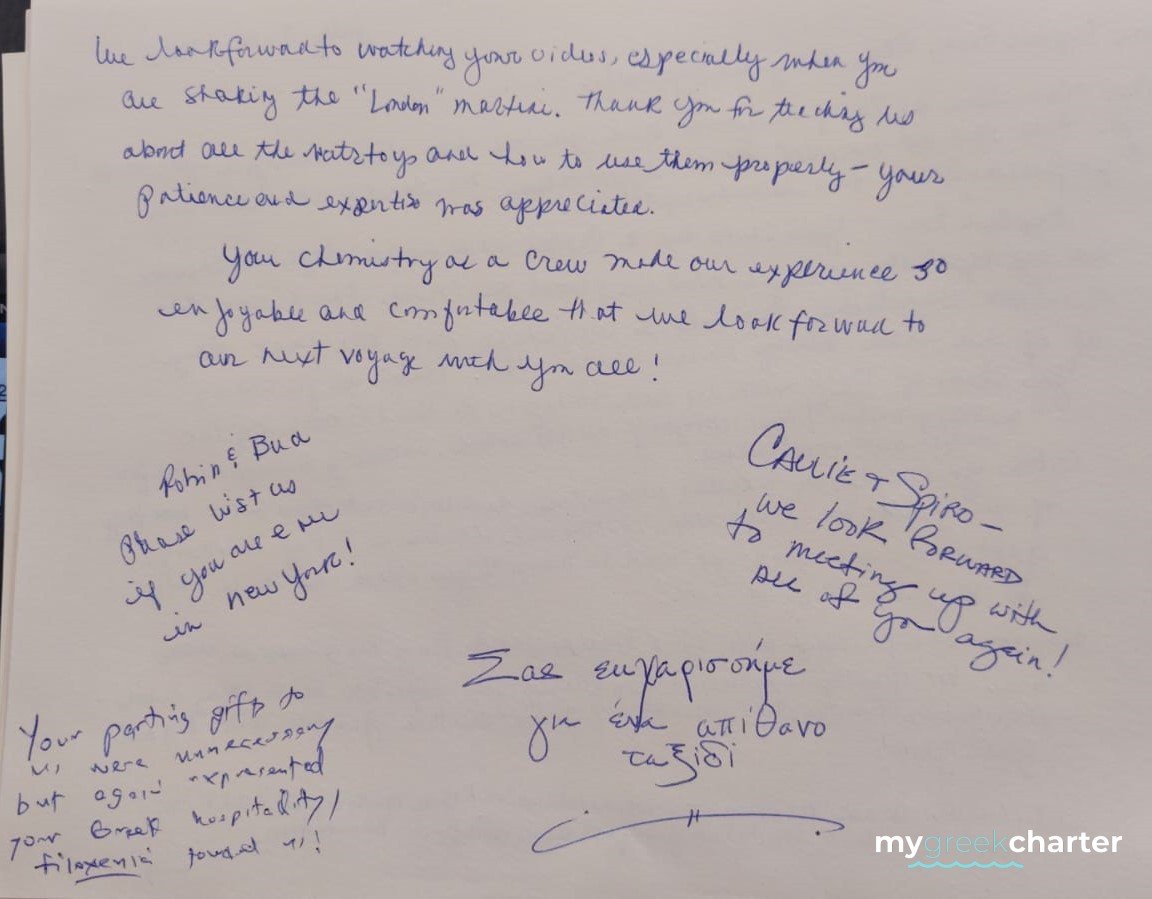 We look forward to watching your videos, especially when you
are shaking the "London" martini. Thank you for teaching us
about all the water toys and how to use them properly – your
patience and expertise was appreciated.
Your chemistry as a crew made our experience so
enjoyable and comfortable that we look forward to
our next voyage with you all!
Robin & Bud
Please visit us
if you are ever
in new York!
CALLIE + SPIRO –
we look FORWARD
to meeting up with
ALL of you again!
Σας ευχαριστούμε
για ένα απίθανο
ταξίδι
Your parting gifts to
us were unnecessary
but again represented
your Greek hospitality/
filoxenia toward us!
mygreekcharter